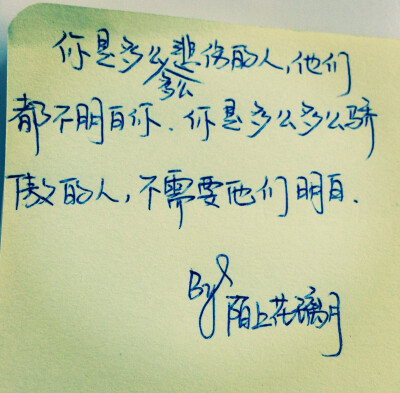 你是多么多么悲伤的人,他们
都不明白你.你是多么多么骄
傲的人,不需要他们明白.
By 陌上花璃月